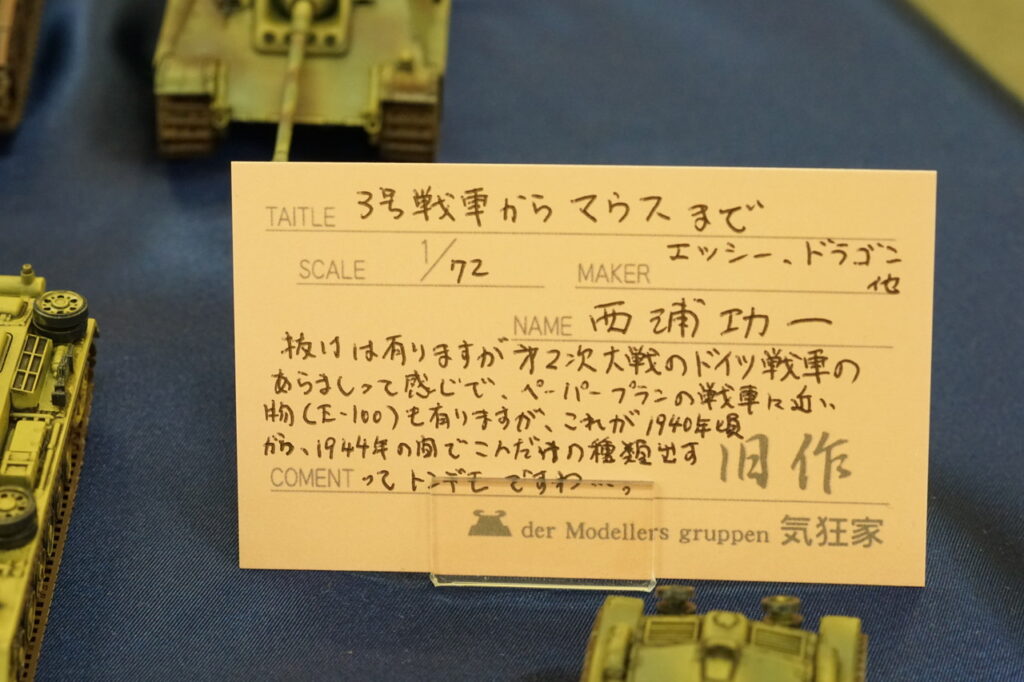 TAITLE 3号戦車からマウスまで
SCALE 1/72
MAKER エッシー、ドラゴン
他
NAME 西浦功一
抜けは有りますが才2次大戦のドイツ戦車の
あらましって感じで、ペーパープランの戦車に近い
物(E-100)も有りますが、これが1940年頃
から、1944年の間でこんだけの種類出す
旧作
COMENT ってトンデモですわ…。
der Modellers gruppen 気狂家